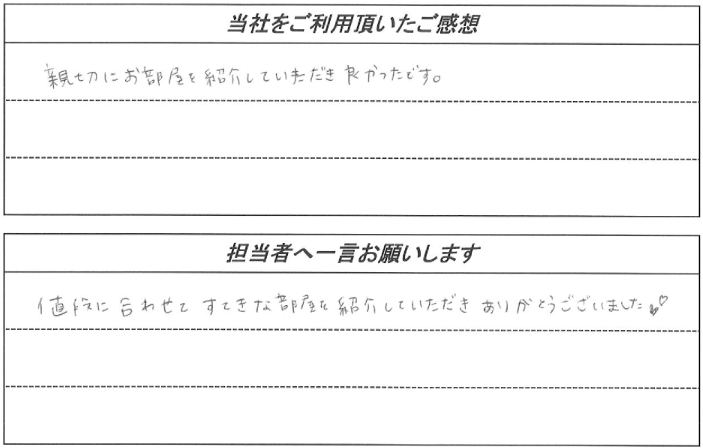 当社をご利用頂いたご感想
親切にお部屋を紹介していただき良かったです。
担当者へ一言お願いします
値段に合わせてすてきな部屋を紹介していただきありがとうございました♡♡